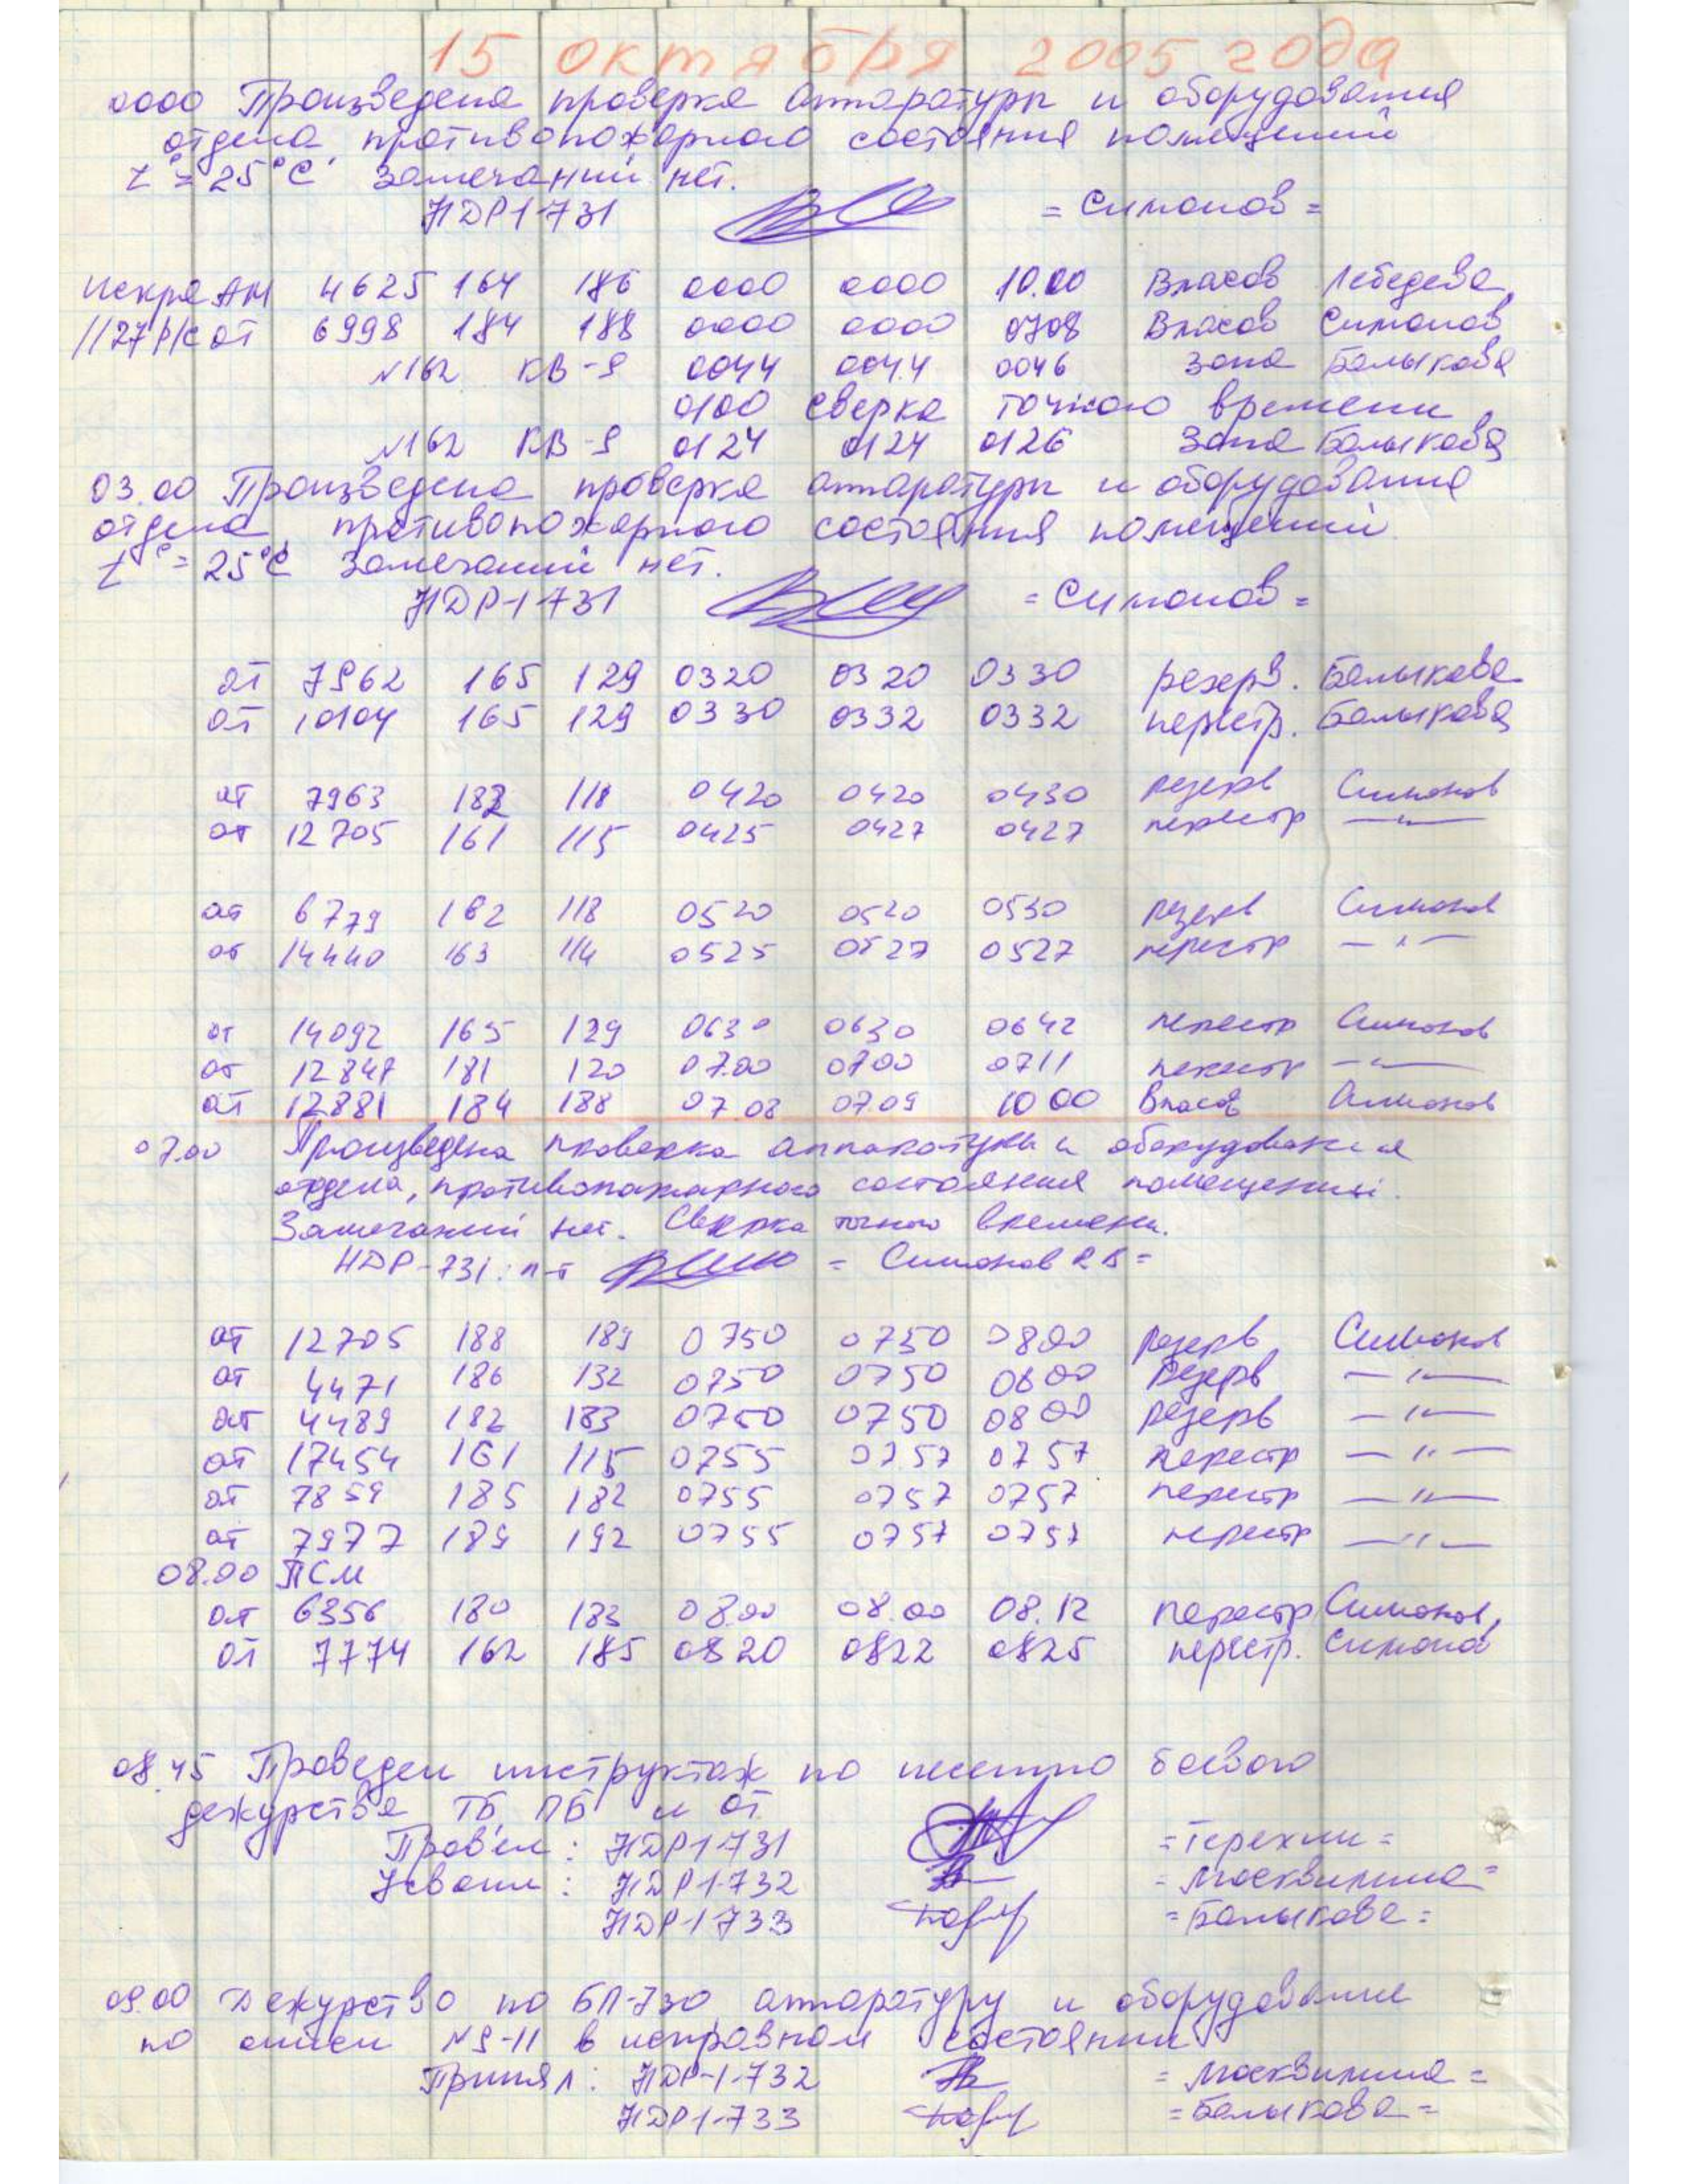 15 октября 2005 года
0000 Произведена проверка аппаратуры и оборудования
отдела, противопожарного состояния помещений
t° = 25°C Замечаний нет.
НДР1-731 = Симонов =
Искра АМ 4625 164 186 0000 0000 10.00 Власов Лебедева
1127 р/с от 6998 184 188 0000 0000 0708 Власов Симонов
N162 КВ-9 0044 0044 0046 Зона Балыкова
0100 сверка точного времени
N162 КВ-9 0124 0124 0126 Зона Балыкова
03.00 Произведена проверка аппаратуры и оборудования
отдела, противопожарного состояния помещений
t° = 25°C Замечаний нет.
НДР-1-731 = Симонов =
от 7962 165 129 0320 0320 0330 резерв. Балыкова
от 10104 165 129 0330 0332 0332 перестр. Балыкова
от 7963 182 118 0420 0420 0430 резерв Симонов
от 12705 161 115 0425 0427 0427 перестр — " —
от 6779 182 118 0520 0520 0530 резерв Симонов
от 14440 163 114 0525 0527 0527 перестр — " —
от 14092 165 129 0630 0630 0642 перестр Симонов
от 12847 181 120 07.00 0700 0711 перестр — " —
от 12881 184 188 07.08 07.09 1000 Власов Симонов
07.00 Произведена проверка аппаратуры и оборудования
отдела, противопожарного состояния помещений.
Замечаний нет. Сверка точного времени.
НДР-731: п-т = Симонов Р.В =
от 12705 188 189 0750 0750 0800 резерв Симонов
от 4471 186 132 0750 0750 0800 резерв — " —
от 4489 182 183 0750 0750 0800 резерв — " —
от 17454 161 115 0755 0757 0757 перестр — " —
от 7859 185 182 0755 0757 0757 перестр — " —
от 7977 189 192 0755 0757 0757 перестр — " —
08.00 ПСМ
от 6356 180 183 08.00 08.00 08.12 перестр Симонов
от 7774 162 185 0820 0822 0825 перестр. Симонов
08.45 Проведен инструктаж по несению боевого
дежурства ТБ, ПБ и от
Провел: НДР1-731 = Терехин =
Усвоили: НДР1-732 = Москвинина =
НДР-1-733 = Балыкова =
09.00 Дежурство по БП-730 аппаратуру и оборудование
по описи N9-11 в исправном состоянии
Принял: НДР-1-732 = Москвинина =
НДР1-733 = Балыкова =